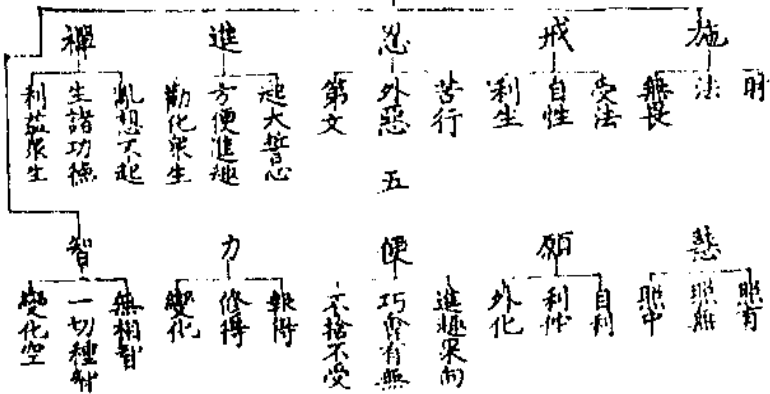 施
財
法
無畏
戒
受法
自性
利生
忍
苦行
外惡
第文
進
起大誓心
方便進趣
勸化眾生
禪
亂想不起
生諸功德
利益眾生
五
慧
照有
照無
照中
願
自利
利性
外化
便
進趣果向
巧會有無
不捨不受
力
報得
修得
變化
智
無相智
一切種智
變化空